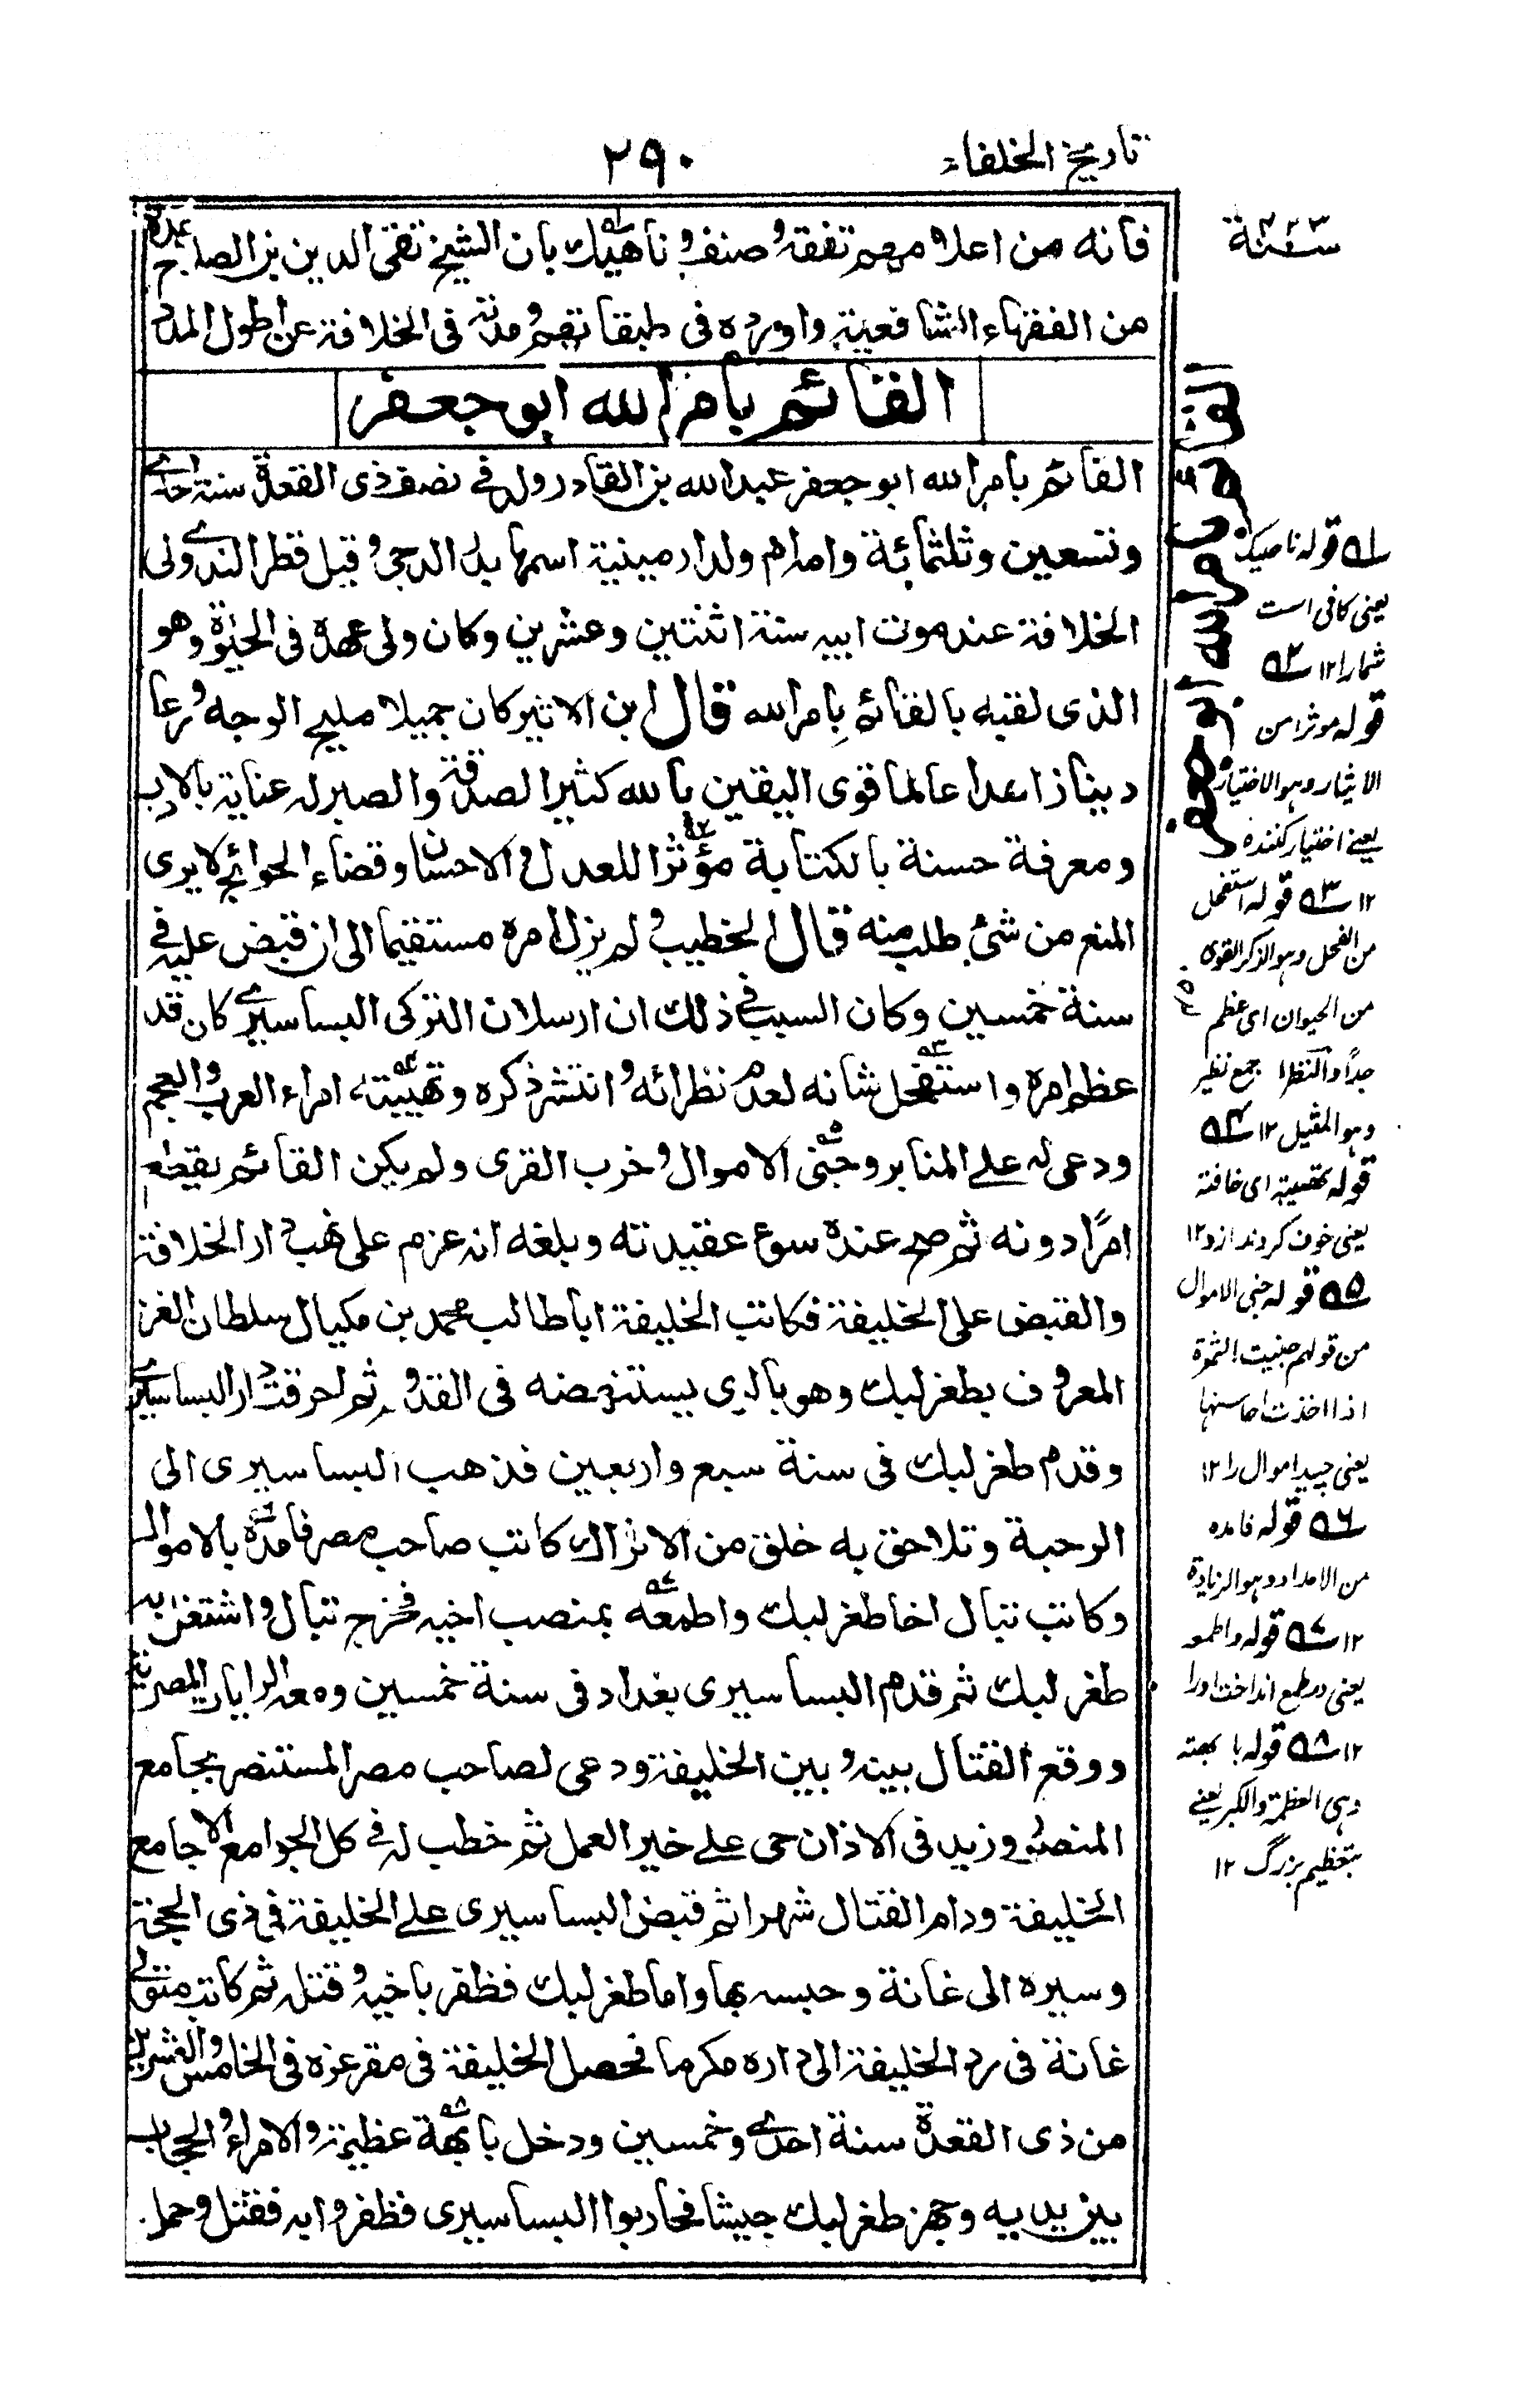 تاريخ الخلفاء
٢٩٠
فانه من اعلامهم تفقه وصنف وناهيك بان الشيخ تقى الدين بن الصلاح عده
من الفقهاء الشافعية واورده فى طبقاتهم ومدته فى الخلافة من اطول المدد
القائم بامر الله ابو جعفر
القائم بامر الله ابو جعفر عبد الله بن القادر ولد فى نصف ذى القعدة سنة احدى
وتسعين وثلثمائة وامه ام ولد ارمينية اسمها بدر الدجى وقيل قطر الندى ولى
الخلافة عند موت ابيه سنة اثنتين وعشرين وكان ولى عهده فى الحيوة وهو
الذى لقبه بالقائم بامر الله قال ابن الاثير كان جميلا مليح الوجه ورعا
دينا زاهدا عالما قوى اليقين بالله كثير الصدقة والصبر له عناية بالادب
ومعرفة حسنة بالكتابة مؤثرا للعدل والاحسان وقضاء الحوائج لا يرى
المنع من شئ طلب منه قال الخطيب ولم يزل امره مستقيما الى ان قبض عليه فى
سنة خمسين وكان السبب فى ذلك ان ارسلان التركى البساسيرى كان قد
عظم امره واستفحل شانه لعدم نظرائه وانتشر ذكره وتهيبته امراء العرب والعجم
ودعى له على المنابر وجبى الاموال وخرب القرى ولم يكن القائم يقطع
امرًا دونه ثم صح عنده سوء عقيدته وبلغه انه عزم على نهب دار الخلافة
والقبض على الخليفة فكاتب الخليفة ابا طالب محمد بن مكيال سلطان الغز
المعروف بطغرلبك وهو بالرى يستنهضه فى القدوم ثم احرقت دار البساسيرى
وقدم طغرلبك فى سنة سبع واربعين فذهب البساسيرى الى
الرحبة وتلاحق به خلق من الاتراك كاتب صاحب مصر فامده بالاموال
وكاتب تبال اخا طغرلبك واطمعه بمنصب اخيه فخرج تبال واشتغل به
طغرلبك ثم قدم البساسيرى بغداد فى سنة خمسين ومعه الرايات المصرية
ووقع القتال بينه وبين الخليفة ودعى لصاحب مصر المستنصر بجامع
المنصور وزيد فى الاذان حى على خير العمل ثم خطب له فى كل الجوامع الا جامع
الخليفة ودام القتال شهرا ثم قبض البساسيرى على الخليفة فى ذى الحجة
وسيره الى غانة وحبسه بها واما طغرلبك فظفر باخيه وقتله ثم كاتب متولى
غانة فى رد الخليفة الى داره مكرما فحصل الخليفة فى مقر عزه فى الخامس والعشرين
من ذى القعدة سنة احدى وخمسين ودخل بابهة عظيمة والامراء والحجاب
بين يديه وجهز طغرلبك جيشا فحاربوا البساسيرى فظفروا به فقتل وحمل
القائم بامر الله ابو جعفر
ـه١ قوله ناهيك
يعنى كافى است
شمارا ١٢ ـه٢
قوله موثرا من
الايثار وهو الاختيار
يعنے اختيار كننده
١٢ ـه٣ قوله استفحل
من الفحل وهو الذكر القوى
من الحيوان اى عظم
جدًا والنظرا جمع نظير
وهو المثيل ١٢ ـه٤
قوله تهيبته اى خافته
يعنى خوف كردند ازو ١٢
ـه٥ قوله جبى الاموال
من قولهم جنيت الثمرة
اذا اخذت احاسنها
يعنى چيد اموال را ١٢
ـه٦ قوله فامده
من الامداد وهو الزيادة
١٢ ـه٧ قوله واطمعه
يعنى درطمع انداخت اورا
١٢ ـه٨ قوله بابهته
وهى العظمة والكبر يعنے
بتعظيم بزرگ ١٢